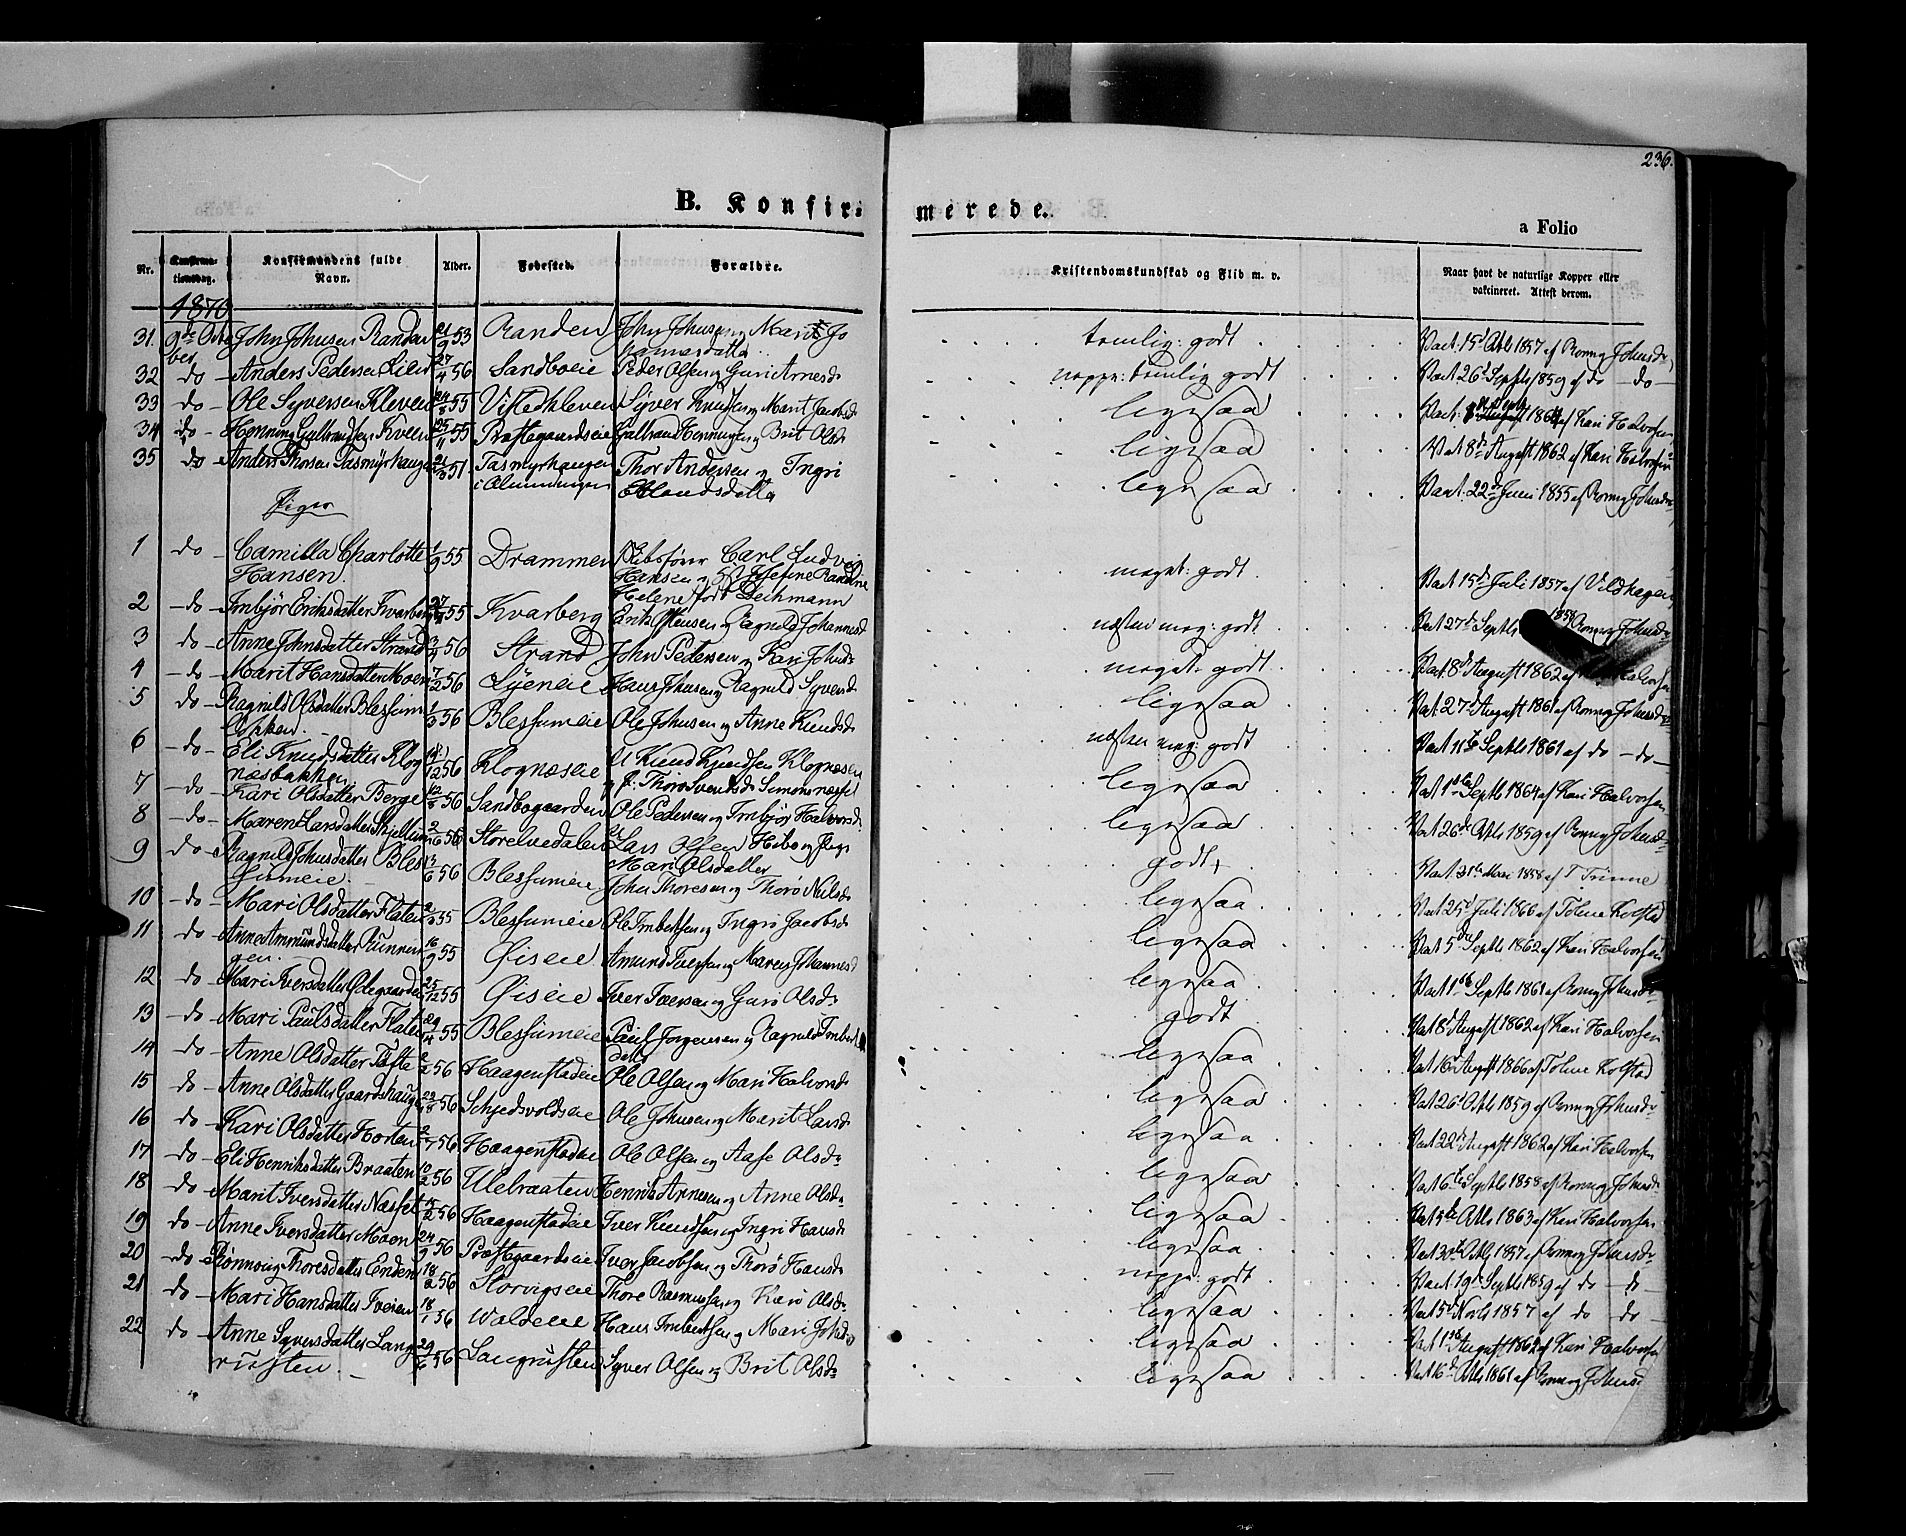 236.
B. Konfir=
merede.
a Folio
Nr. Konfirma-tionsdag. Konfirmandens fulde Navn. Alder. Fødested. Forældre. Kristendomskundskab og Flid m. v. Naar havt de naturlige Kopper eller vaksineret. Attest derom.
1870
31. 9de Octo John Johnsen Randen 21/9 53 Randen John Johnsen og Marit Jo temlig: godt Vact. 15d Octb 1857 af Ronnog Johnsdr
ber hannesdatter
32 do Anders Pedersen Lien 27/4 56 Sandboeie Peder Olsen og Guri Arnesd: noppe: temlig godt Vact 26d Septb 1859 af do — do —
33 — do — Ole Syversen Kleven 24/5 55 Vistedkleven Syver Knudsen og Marit Jacobsd ligesaa Vact. 1864 af Kari Halvorsen
34 do — Henning Gulbrandsen Kveen 25/11 55 Præstegaardseie Gulbrand Henningsen og Brit Olsd: ligesaa Vact 8de August 1862 af Kari Halvorsen
35 — do — Anders Thorsen Tasmyrhaugen 51 Tasmyrhaugen Thor Andersen og Ingri ligesaa Vact. 22de Juni 1855 af Ronnog Johnsdr
i Almindingen Erlandsdatter
Piger
1 — do — Camilla Charlotte 1/9 55 Drammen Skibsfører Carl Ludvig meget: godt Vact 15de Juli 1857 af Vildhagen
Hansen. Hansen og
Helene født Deichmann
2 — do — Imbjør Eriksdatter Kvarberg 55 Kvarberg Erik Ostensen og Ragnild Johannesd næsten meg: godt Vact 27de Septb Ronnog Johnsdr
3 do — Anne Johnsdatter Strand 56 Strand John Pedersen og Kari Johnsdr meget: godt Vact 8de August 1862 af Kari Halvorsen
4 — do — Marit Hansdatter Moen 7/2 56 Lyeneie Hans Johnsen og Ragnild Syversd ligesaa Vact 27d August 1861 af Ronnog Johnsdr
5 do — Ragnild Olsdatter Blessum 56 Blessumeie Ole Johnsen og Anne Knudsd: næsten meg: godt Vact 11te Septb 1861 af do — do —
6 — do — Eli Knudsdatter Klog 12 56 Klognæseie U Knud Knudsen Klognæseie ligesaa Vact 1ste Septb 1864 af Kari Halvorsen
næsbakken p: Thoro Svendsd: Simonsnæsset
7 — do — Kari Olsdatter Berge 56 Sandbogaarden Ole Pedersen og Imbjør Halvorsd: ligesaa Vact 26de Octb 1859 af Ronnog Johnsd:
8 — do — Maren Larsdatter Skjellum 56 Storelvedalen Lars Olsen Hebo og Pige godt Vact 31te Mai 1858 af T Trønne
Mari Olsdatter
9 do — Ragnild Johnsdatter Bles 13/6 56 Blessumeie John Thoresen og Thorø Nilsdr ligesaa Vact 25d Juli 1866 af Toline Kolstad
sumeie.
10 — do — Mari Olsdatter Flaten 55 Blessumeie Ole Imbertsen og Ingri Jacobsd: ligesaa Vact 5te Septb 1862 af Kari Halvorsen
11 do — Anne Ammundsdatter Runnin 16/9 55 Øiseie Amund Iversen og Maren Johannesd ligesaa Vact 1ste Septb 1861 af Ronnog Johnsd
gen.
12 — do — Mari Iversdatter Ødegaarden 25/12 55 Øiseie Iver Iversen og Guro Olsd: godt Vact 8d August 1862 af Kari Halvorsen
13 — do — Mari Paulsdatter Flaten 29/4 55 Blessumeie Paul Jørgensen og Ragnild Imberts ligesaa Vact 16d August 1866 af Toline Kolstad
datt
14 do — Anne Olsdatter Tofte 56 Haagenstadeie Ole Olsen og Mari Halvorsd: ligesaa Vact 26d Octb 1859 af Ronnog Johnsd:
15 do — Anne Olsdatter Gaardshaugen 56 Schjedsvoldseie Ole Johnsen og Marit Larsd: ligesaa Vact 22d August 1862 af Kari Halvorsen
16 do — Kari Olsdatter Horten 56 Haagenstadeie Ole Olsen og Aase Olsd: ligesaa Vact 6te Septb 1858 af Ronnog Johnsd:
17 do — Eli Henriksdatter Braaten 10/2 56 Ulebraaten Henrik Arnesen og Anne Olsd: ligesaa Octb 1863 af Kari Halvorsen
18 do — Marit Iversdatter Næsset 56 Haagenstadeie Iver Knudsen og Ingri Hansd: ligesaa Vact 30te Octb 1857 af Ronnog Johnsdr
19 do — Anne Iversdatter Moen 24/9 56 Præstegaardseie Iver Jacobsen og Thorø Hansd: noppe: godt Vact 19d Septb 1859 af do — do —
20 — do — Rønnoug Thoresdatter Enden 18/2 56 Storvigseie Thore Rasmussen og Kari Olsd: ligesaa Vact 5d Novb 1857 af do do —
21 do — Mari Hansdatter Iveien 18/1 56 Waldeeie Hans Imbertsen og Mari Johnsd: ligesaa Vact 1ste August 1862 af Kari Halvorsen
22 do — Anne Syversdatter Lang 29/6 56 Langrusten Syver Olsen og Brit Olsd: ligesaa Vact 16de Octb 1861 af Ronnog Johnsd
rusten —